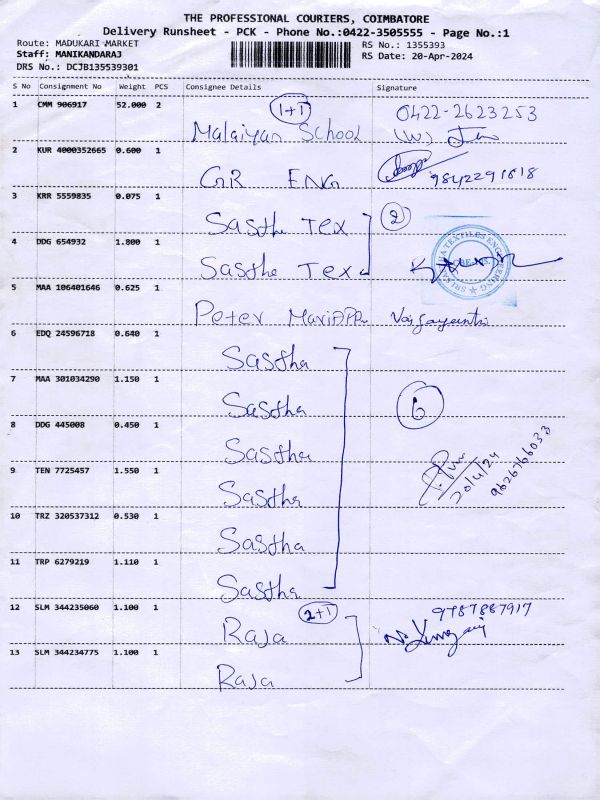 THE PROFESSIONAL COURIERS, COIMBATORE
Delivery Runsheet - PCK - Phone No.:0422-3505555 - Page No.:1
Route: MADUKARI MARKET
Staff: MANIKANDARAJ
DRS No.: DCJB135539301
RS No.: 1355393
RS Date: 20-Apr-2024
S No Consignment No Weight PCS Consignee Details Signature
1 CMM 906917 52.000 2 1+1 0422-2623253
Malaiyan School
2 KUR 4000352665 0.600 1
GR ENG 9842291618
3 KRR 5559835 0.075 1
Sasthe Tex 2
4 DDG 654932 1.800 1
Sasthe Tex
5 MAA 106401646 0.625 1
Peter
6 EDQ 24596718 0.640 1
Sastha
7 MAA 301034290 1.150 1
Sastha 6
8 DDG 445008 0.450 1
Sastha
9 TEN 7725457 1.550 1
Sastha 20/4/24 9626766033
10 TRZ 320537312 0.530 1
Sastha
11 TRP 6279219 1.110 1
Sastha
12 SLM 344235060 1.100 1 2+1 9787887917
Raja
13 SLM 344234775 1.100 1
Raja